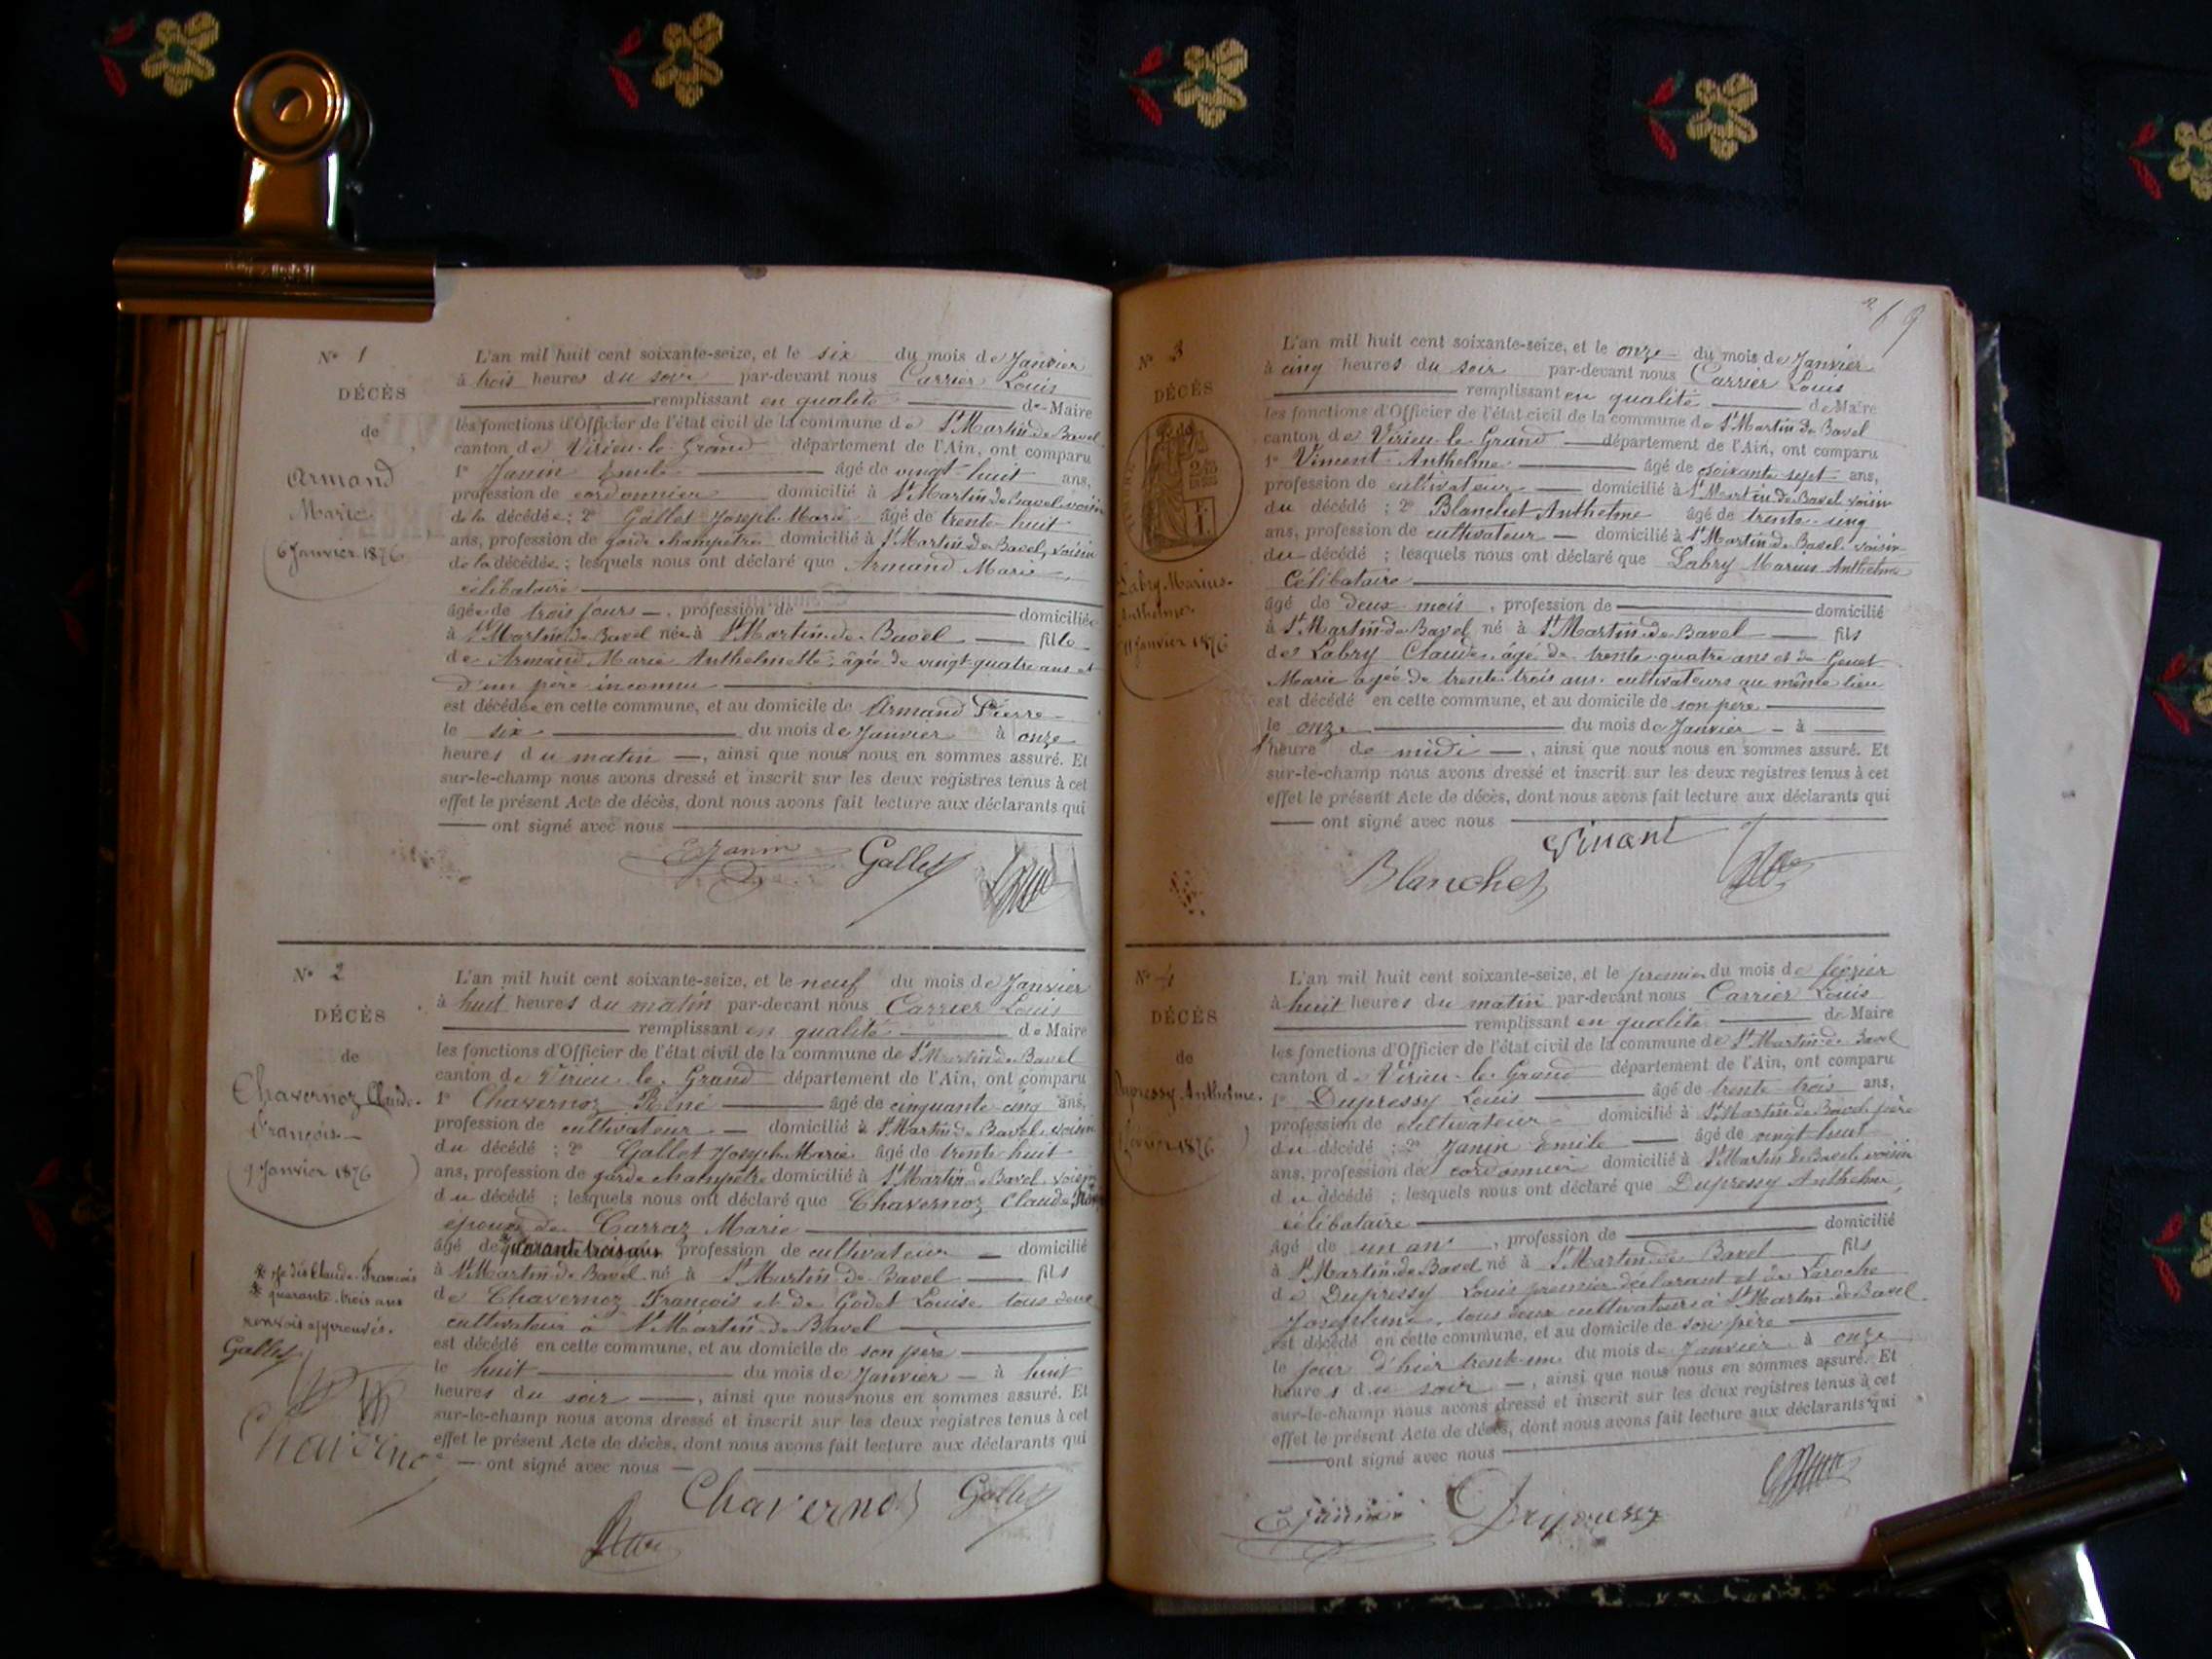 N° 1
DÉCÈS
de
Armand
Marie
6 Janvier 1876
L'an mil huit cent soixante-seize, et le six du mois de Janvier
à trois heures du soir par-devant nous Carrier Louis
remplissant en qualité de Maire
les fonctions d'Officier de l'état civil de la commune de St Martin de Bavel
canton de Virieu-le-Grand département de l'Ain, ont comparu
1° Janin Emile âgé de vingt-huit ans,
profession de cordonnier domicilié à St Martin de Bavel, voisin
de la décédée ; 2° Gallet Joseph Marie âgé de trente-huit
ans, profession de garde champêtre domicilié à St Martin de Bavel, voisin
de la décédée ; lesquels nous ont déclaré que Armand Marie,
célibataire
âgée de trois jours, profession de domiciliée
à St Martin de Bavel née à St Martin de Bavel fille
de Armand Marie Anthelmette, âgée de vingt-quatre ans et
d'un père inconnu
est décédée en cette commune, et au domicile de Armand Pierre
le six du mois de Janvier à onze
heures du matin, ainsi que nous nous en sommes assuré. Et
sur-le-champ nous avons dressé et inscrit sur les deux registres tenus à cet
effet le présent Acte de décès, dont nous avons fait lecture aux déclarants qui
ont signé avec nous
E Janin Gallet
N° 2
DÉCÈS
de
Chavernoz Claude
François
9 Janvier 1876
L'an mil huit cent soixante-seize, et le neuf du mois de Janvier
à huit heures du matin par-devant nous Carrier Louis
remplissant en qualité de Maire
les fonctions d'Officier de l'état civil de la commune de St Martin de Bavel
canton de Virieu-le-Grand département de l'Ain, ont comparu
1° Chavernoz Réné âgé de cinquante-cinq ans,
profession de cultivateur domicilié à St Martin de Bavel, voisin
du décédé ; 2° Gallet Joseph Marie âgé de trente-huit
ans, profession de garde champêtre domicilié à St Martin de Bavel, voisin
du décédé ; lesquels nous ont déclaré que Chavernoz Claude
époux de Carraz Marie
âgé de quarante trois ans profession de cultivateur domicilié
à St Martin de Bavel né à St Martin de Bavel fils
de Chavernoz François et de Godet Louise tous deux
cultivateur à St Martin de Bavel
est décédé en cette commune, et au domicile de son père
le huit du mois de Janvier à huit
heures du soir, ainsi que nous nous en sommes assuré. Et
sur-le-champ nous avons dressé et inscrit sur les deux registres tenus à cet
effet le présent Acte de décès, dont nous avons fait lecture aux déclarants qui
ont signé avec nous
Claude François
quarante-trois ans
renvois approuvés.
Gallet
Chavernoz
Chavernoz Gallet
69
N° 3
DÉCÈS
Labry Marius
Anthelme
11 Janvier 1876
L'an mil huit cent soixante-seize, et le onze du mois de Janvier
à cinq heures du soir par-devant nous Carrier Louis
remplissant en qualité de Maire
les fonctions d'Officier de l'état civil de la commune de St Martin de Bavel
canton de Virieu-le-Grand département de l'Ain, ont comparu
1° Vincent Anthelme âgé de soixante sept ans,
profession de cultivateur domicilié à St Martin de Bavel voisin
du décédé ; 2° Blanchet Anthelme âgé de trente-cinq
ans, profession de cultivateur domicilié à St Martin de Bavel, voisin
du décédé ; lesquels nous ont déclaré que Labry Marius Anthelme
Célibataire
âgé de deux mois, profession de domicilié
à St Martin de Bavel né à St Martin de Bavel fils
de Labry Claude, âgé de trente-quatre ans et de
Marie âgée de trente-trois ans, cultivateurs au même lieu
est décédé en cette commune, et au domicile de son père
le onze du mois de Janvier à
heure de midi, ainsi que nous nous en sommes assuré. Et
sur-le-champ nous avons dressé et inscrit sur les deux registres tenus à cet
effet le présent Acte de décès, dont nous avons fait lecture aux déclarants qui
ont signé avec nous
Blanchet
N° 4
DÉCÈS
de
Dupressy Anthelme.
février 1876
L'an mil huit cent soixante-seize, et le premier du mois de février
à huit heures du matin par-devant nous Carrier Louis
remplissant en qualité de Maire
les fonctions d'Officier de l'état civil de la commune de St Martin de Bavel
canton de Virieu-le-Grand département de l'Ain, ont comparu
1° Dupressy Louis âgé de trente-trois ans,
profession de cultivateur domicilié à St Martin de Bavel, père
du décédé ; 2° Janin Emile âgé de vingt-huit
ans, profession de cordonnier domicilié à St Martin de Bavel, voisin
du décédé ; lesquels nous ont déclaré que Dupressy Anthelme,
célibataire
âgé de un an, profession de domicilié
à St Martin de Bavel né à St Martin de Bavel fils
de Dupressy Louis premier déclarant et de Laroche
Josephine, tous deux cultivateurs à St Martin de Bavel.
est décédé en cette commune, et au domicile de son père
le jour d'hier trente-un du mois de Janvier à onze
heures du soir, ainsi que nous nous en sommes assuré. Et
sur-le-champ nous avons dressé et inscrit sur les deux registres tenus à cet
effet le présent Acte de décès, dont nous avons fait lecture aux déclarants qui
ont signé avec nous
E Janin Dupressy